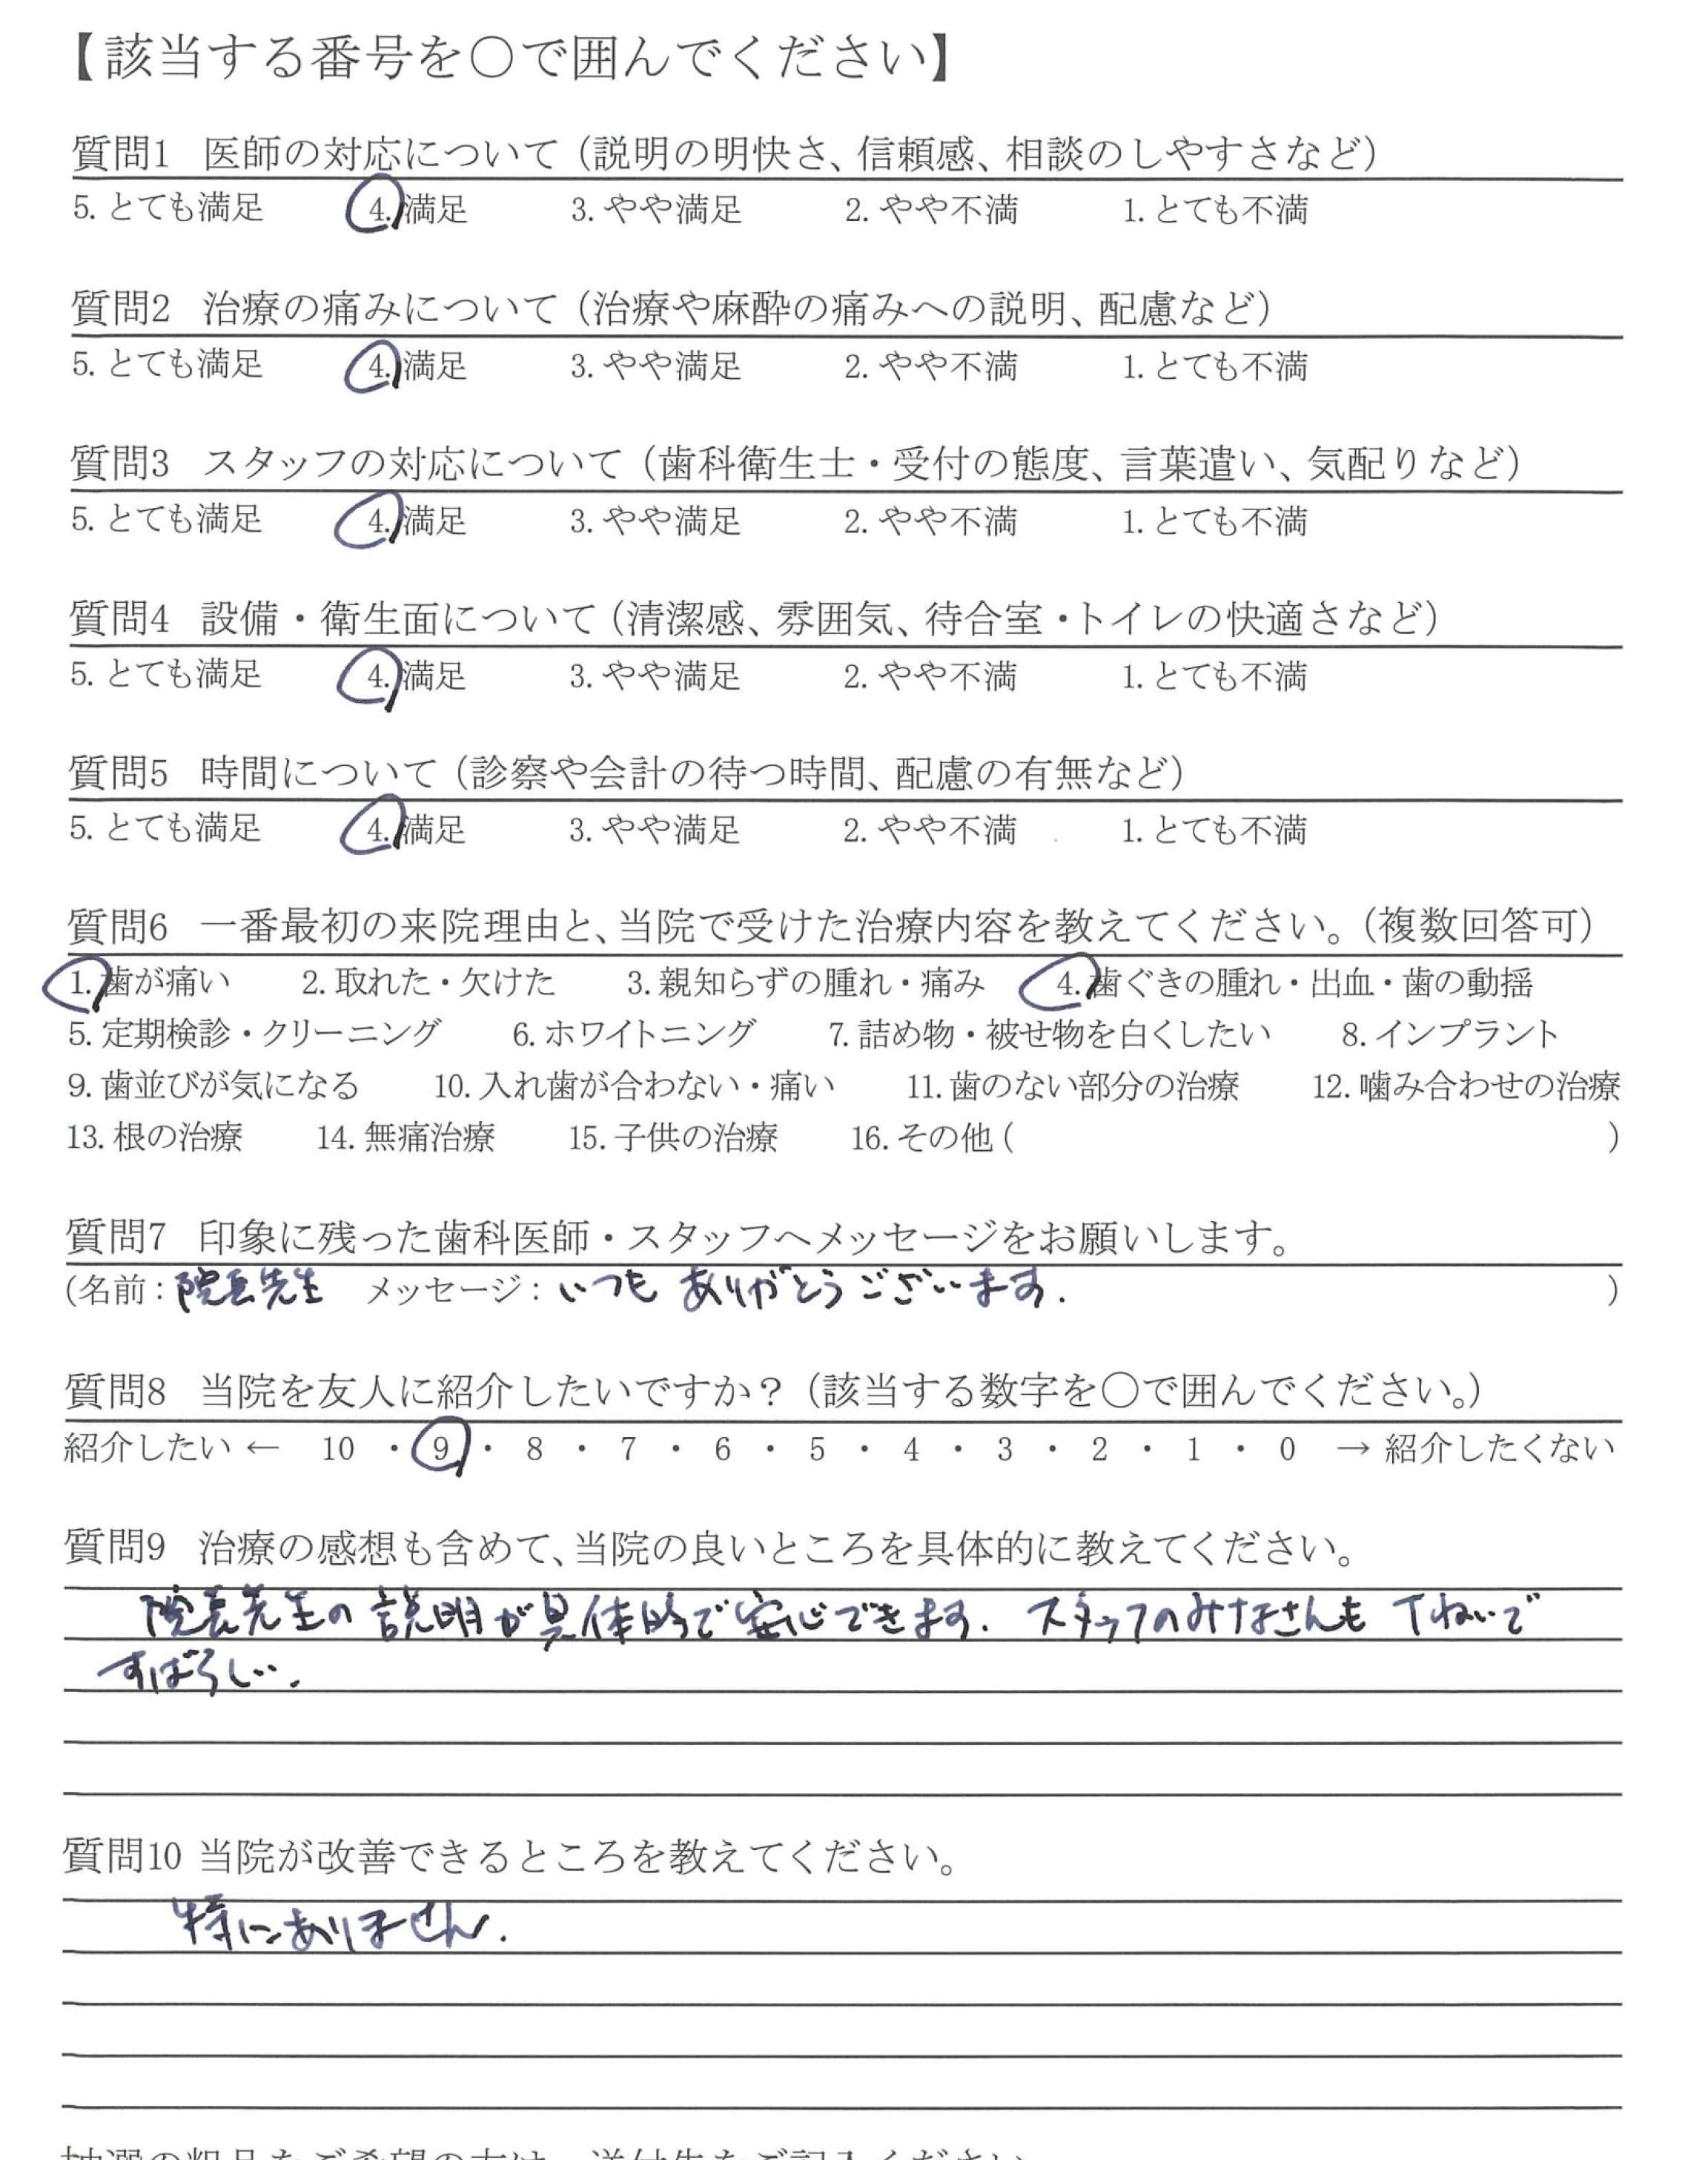 【該当する番号を○で囲んでください】
質問1 医師の対応について（説明の明快さ、信頼感、相談のしやすさなど）
5. とても満足 4. 満足 3. やや満足 2. やや不満 1. とても不満
質問2 治療の痛みについて（治療や麻酔の痛みへの説明、配慮など）
5. とても満足 4. 満足 3. やや満足 2. やや不満 1. とても不満
質問3 スタッフの対応について（歯科衛生士・受付の態度、言葉遣い、気配りなど）
5. とても満足 4. 満足 3. やや満足 2. やや不満 1. とても不満
質問4 設備・衛生面について（清潔感、雰囲気、待合室・トイレの快適さなど）
5. とても満足 4. 満足 3. やや満足 2. やや不満 1. とても不満
質問5 時間について（診察や会計の待つ時間、配慮の有無など）
5. とても満足 4. 満足 3. やや満足 2. やや不満 1. とても不満
質問6 一番最初の来院理由と、当院で受けた治療内容を教えてください。（複数回答可）
1. 歯が痛い 2. 取れた・欠けた 3. 親知らずの腫れ・痛み 4. 歯ぐきの腫れ・出血・歯の動揺
5. 定期検診・クリーニング 6. ホワイトニング 7. 詰め物・被せ物を白くしたい 8. インプラント
9. 歯並びが気になる 10. 入れ歯が合わない・痛い 11. 歯のない部分の治療 12. 噛み合わせの治療
13. 根の治療 14. 無痛治療 15. 子供の治療 16. その他 ( )
質問7 印象に残った歯科医師・スタッフへメッセージをお願いします。
(名前：院長先生 メッセージ：いつも ありがとうございます. )
質問8 当院を友人に紹介したいですか？（該当する数字を○で囲んでください。）
紹介したい ← 10 ・ 9 ・ 8 ・ 7 ・ 6 ・ 5 ・ 4 ・ 3 ・ 2 ・ 1 ・ 0 → 紹介したくない
質問9 治療の感想も含めて、当院の良いところを具体的に教えてください。
院長先生の説明が具体的で安心できます. スタッフのみなさんも てねいで
すばらしい.
質問10 当院が改善できるところを教えてください。
特にありません.
抽選の粗品をご希望の方は、送付先をご記入ください